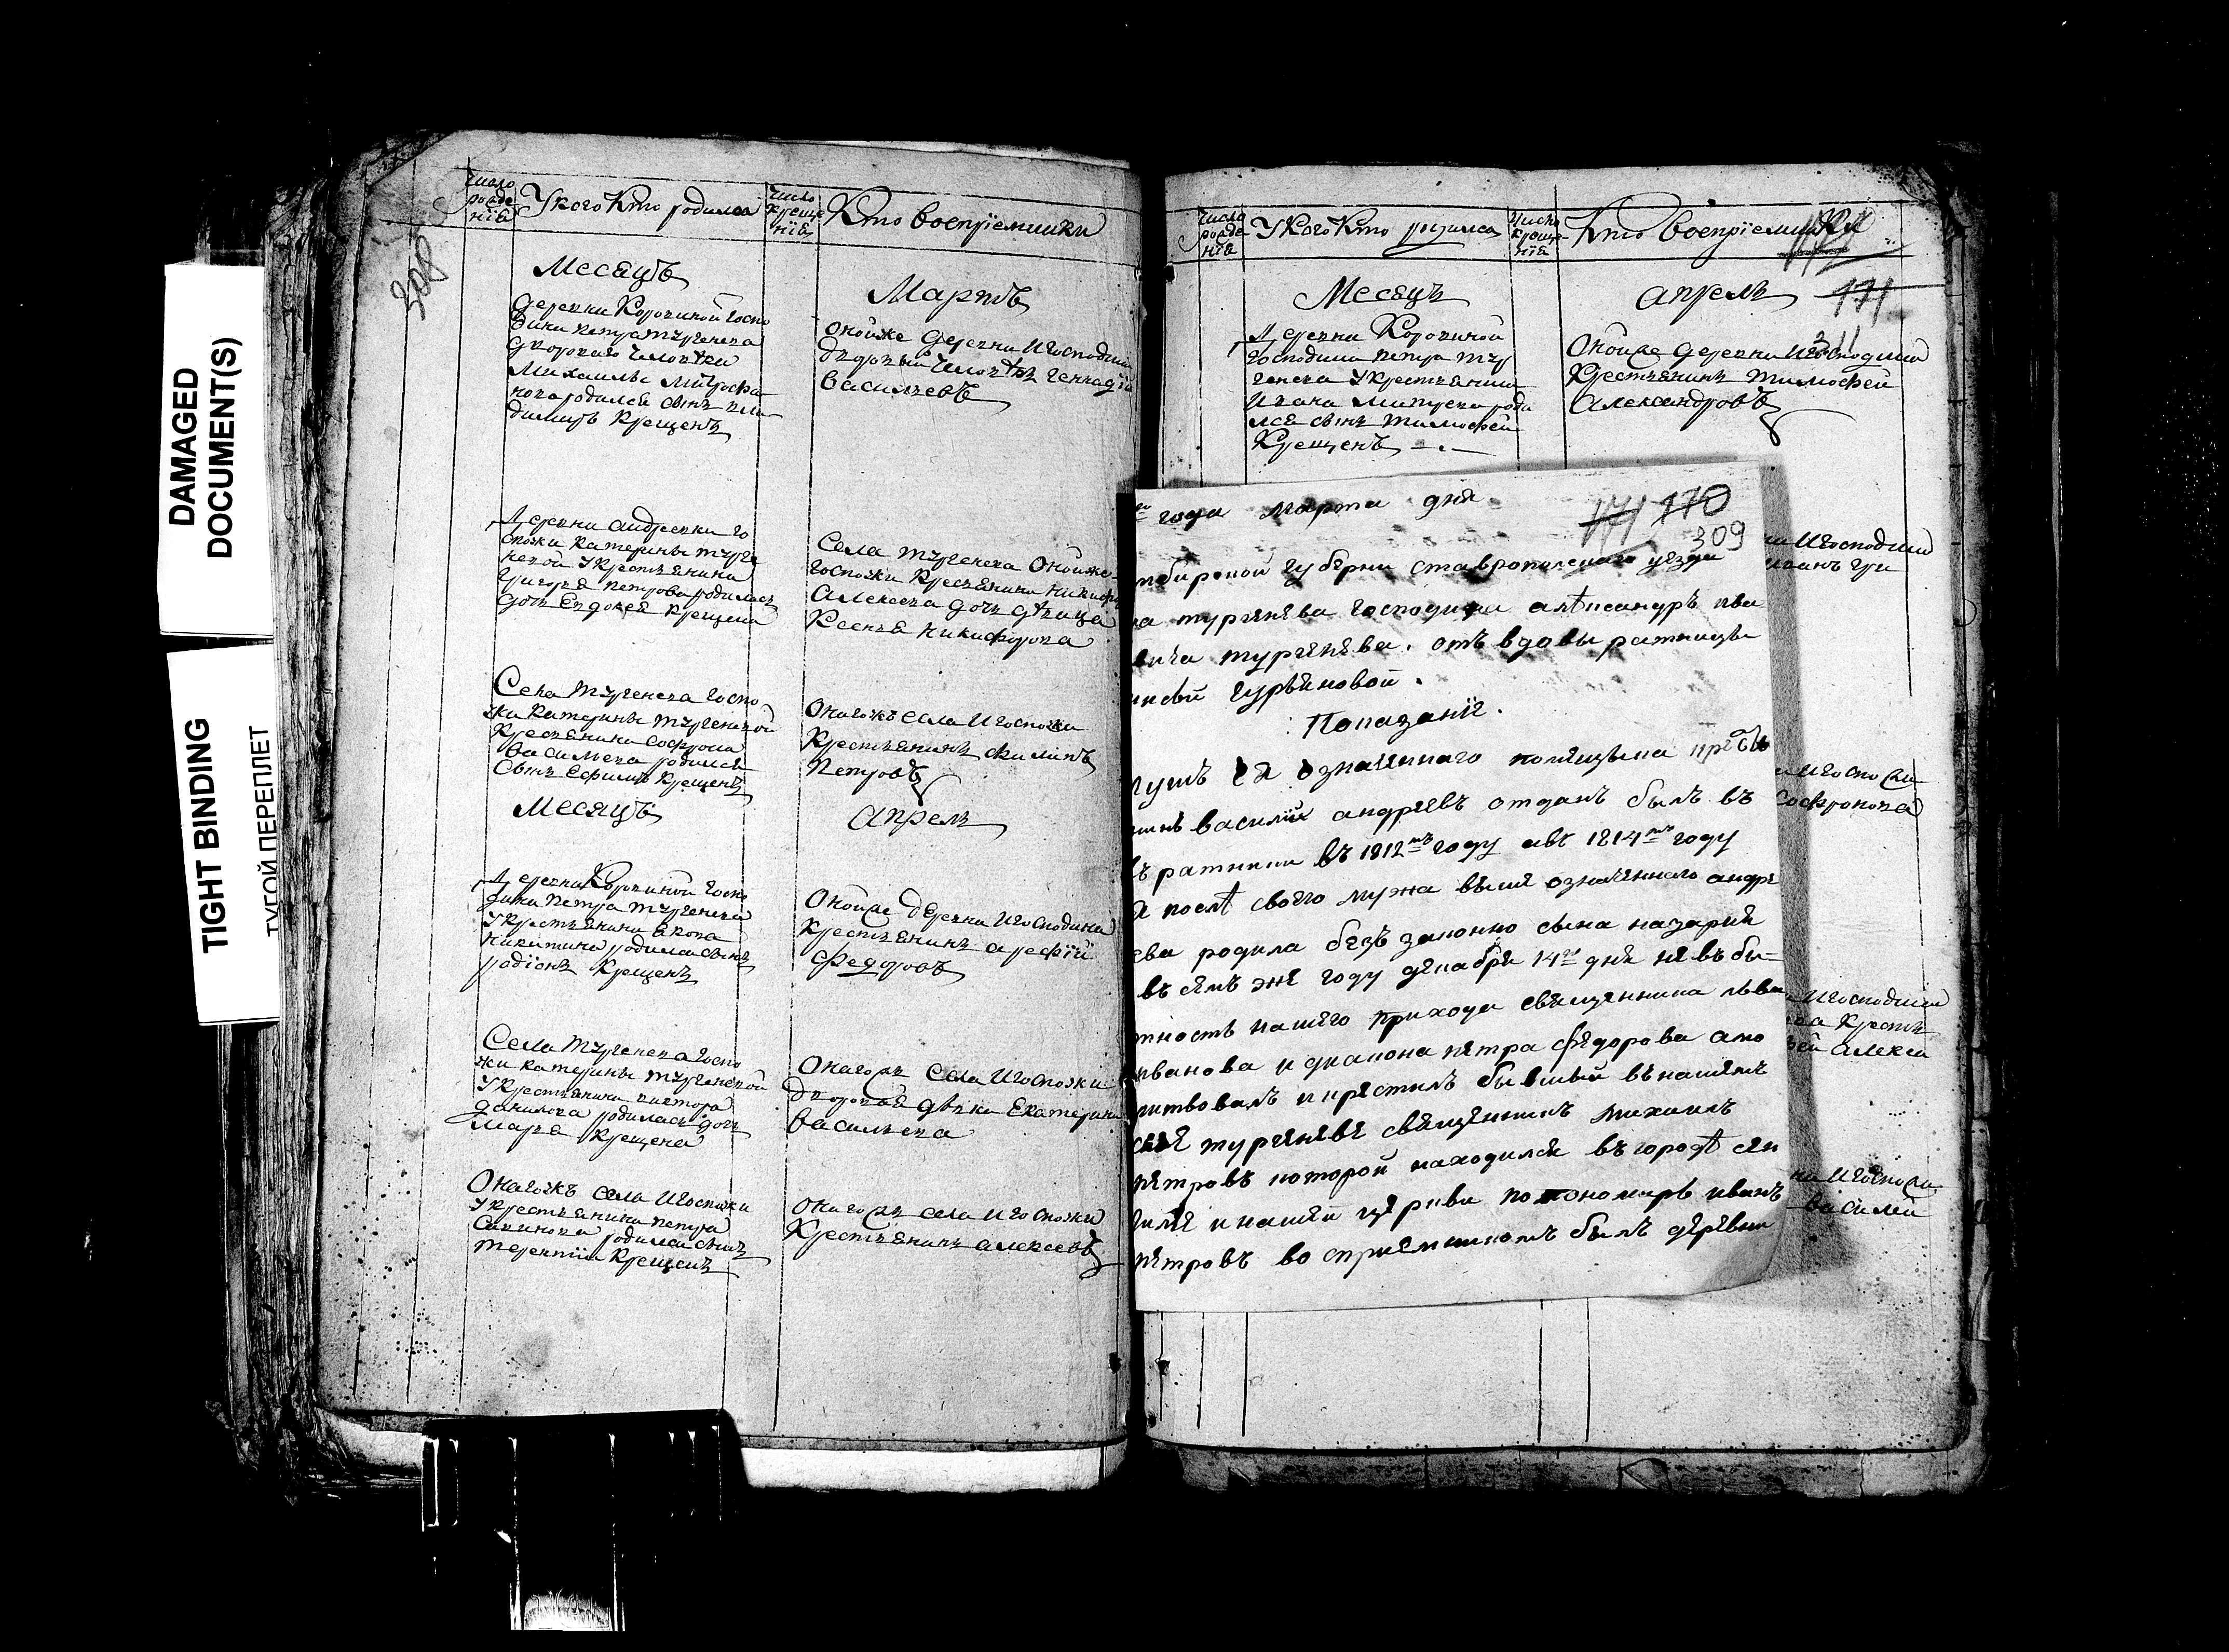 DAMAGED
DOCUMENT(S)
TIGHT BINDING
ТУГОЙ ПЕРЕПЛЕТ
308
Число рожденїя
У кого Кто родился
Число крещенїя
Кто воспрїемники
Месяцъ
Мартъ
Деревни Коровиной госпо
дина петра тургенева
дворового человѣка
Михаилы Митрофа
нова родился сынъ вла
димиръ крещенъ
оной же деревни и господина
дворовый человѣкъ геннадїй
васильевъ
Деревни андреевки го
спожи катерины турге
невой у крестьянина
григорья петрова родилась
дочь Евдокея крещена
Села тургенева оной же
госпожи кресьянина никифора
Алексева дочь дѣвица
Ксенья никифорова
Села тургенева госпо
жи катерины тургеневой
кресьянина софрона
васильева родился
сынъ Ефимъ крещенъ
онагожъ села и госпожи
крестьянинъ филипъ
петровъ
Месяцъ
апрель
Деревни Коровиной госпо
дина петра тургенева
у крестьянина якова
никитина родился сынъ
родїонъ крещенъ
оной же деревни и господина
крестьянинъ арефїй
Федоровъ
Села тургенева госпо
жи катерины тургеневой
у крестьянина виктора
данилова родилась дочь
марья крещена
онагожъ села и госпожи
дворовая дѣвка Екатерина
васильева
онагожъ села и госпожи
у крестьянина петра
савинова родился сынъ
терентїи крещенъ
онагожъ села и госпожи
крестьянинъ алексевъ
Число рожденїя
У кого Кто родился
Число крещенїя
Кто воспрїемники
Месяцъ
апрель
171
311
Деревни Коровиной
господина петра тур
генева у крестьянина
ивана родился
сынъ тимофей
крещенъ
оной же деревни и господина
крестьянинъ тимофей
александровъ
года марта дня
171 170
309
мбирской губерни ставропольскаго уезда
ва тургенева господина алѣксандръ ива
вича тургенева. отъ вдовы ратницы
гурьяновой.
Показанїе.
означеннаго помещика
василий андреевъ отданъ былъ въ
ратники въ 1812мъ году авъ 1814мъ году
я послѣ своего мужа выше означеннаго андре
ева родила беззаконно сына назария
въ семъ же году декабря 14го дня не въ бы=
тность нашего прихода священника льва
иванова и диакона петра федорова а мо
литвовалъ и крестилъ бывшый въ нашемъ
селе тургеневе священникъ михаилъ
петровъ которой находился въ городѣ сен
гилее и нашей церкви пономарь иванъ
петровъ восприемникомъ былъ деревни
и господина
иванъ гри
и госпожи
софронова
и господина
крестья
алексе
и госпожи
василей